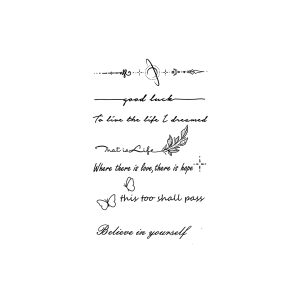 good luck
To live the life I dreamed
That is Life
Where there is love, there is hope
this too shall pass
Believe in yourself